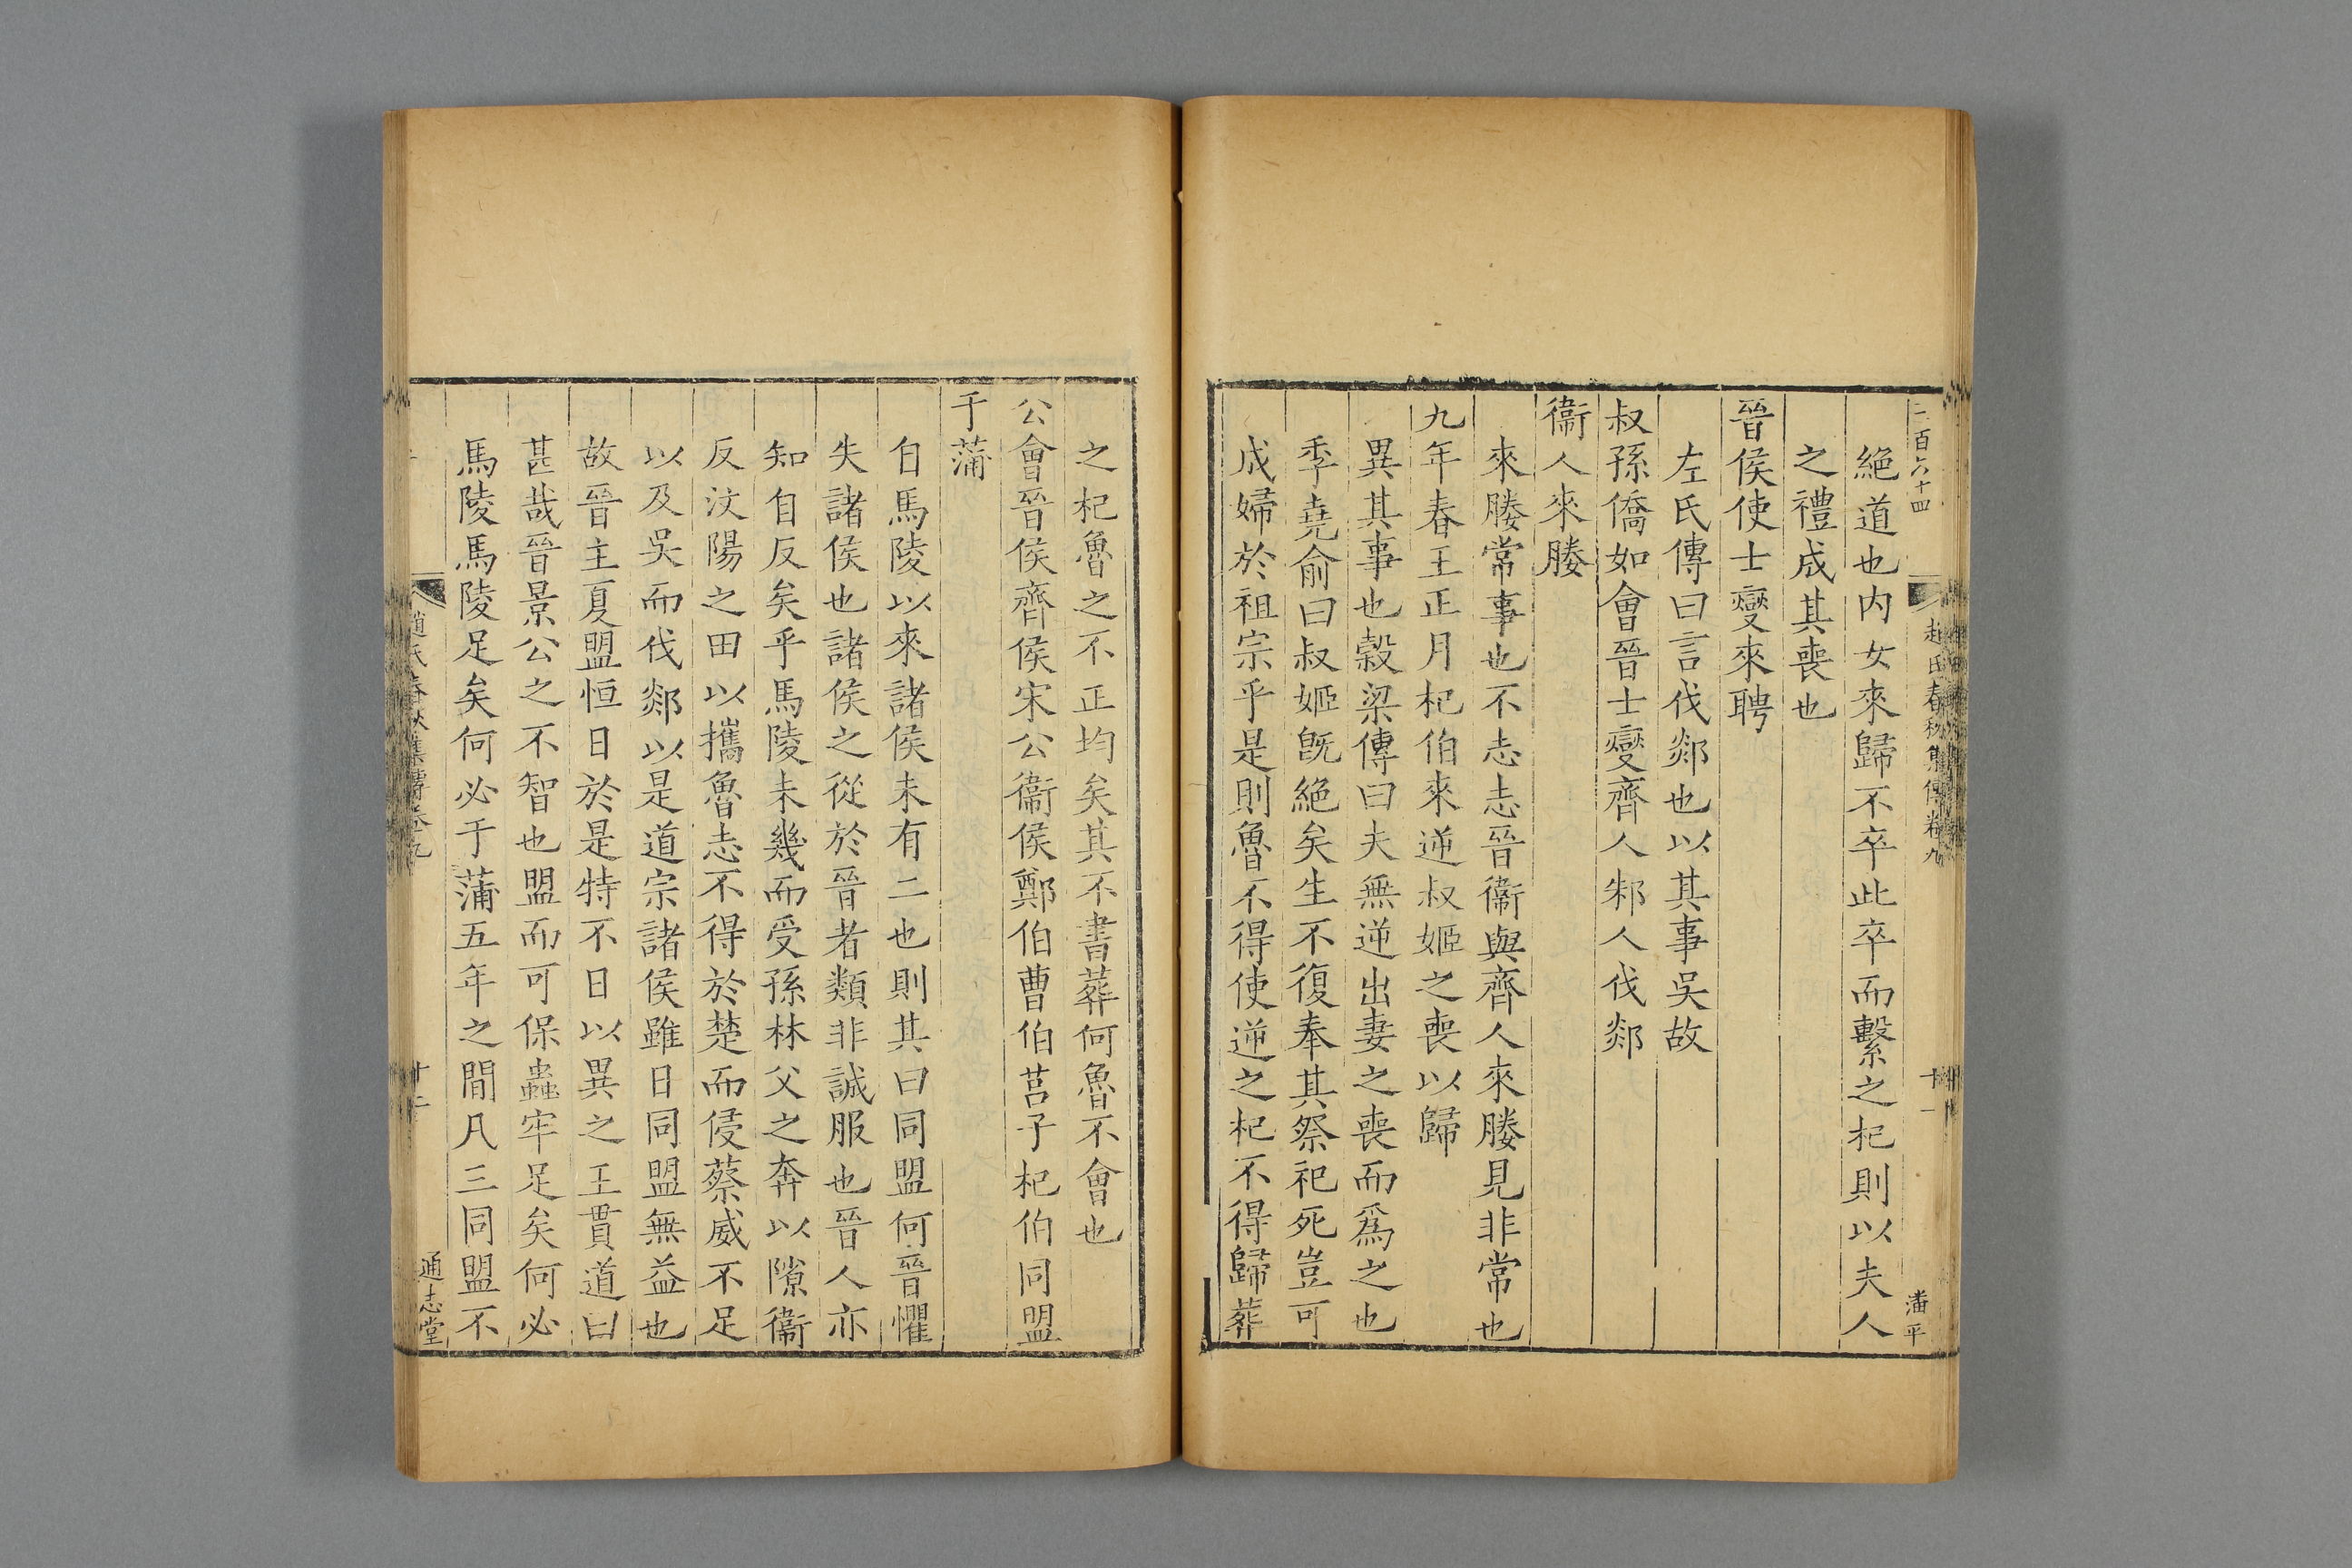 二百六十四
趙氏春秋集傳卷九
十一
潘平
絕道也内女來歸不卒此卒而繫之杞則以夫人
之禮成其喪也
晉侯使士燮來聘
左氏傳曰言伐郯也以其事吳故
叔孫僑如會晉士燮齊人邾人伐郯
衞人來媵
來媵常事也不志志晉衞與齊人來媵見非常也
九年春王正月杞伯來逆叔姬之喪以歸
異其事也榖梁傳曰夫無逆出妻之喪而爲之也
季堯俞曰叔姬旣絕矣生不復奉其祭祀死豈可
成婦於祖宗乎是則魯不得使逆之杞不得歸葬
之杞魯之不正均矣其不書葬何魯不會也
公會晉侯齊侯宋公衞侯鄭伯曹伯莒子杞伯同盟
于蒲
自馬陵以來諸侯未有二也則其曰同盟何晉懼
失諸侯也諸侯之從於晉者類非誠服也晉人亦
知自反矣乎馬陵未幾而受孫林父之奔以隙衞
反汶陽之田以攜魯志不得於楚而侵蔡威不足
以及吳而伐郯以是道宗諸侯雖日同盟無益也
故晉主夏盟恒日於是特不日以異之王貫道曰
甚哉晉景公之不智也盟而可保蟲牢足矣何必
馬陵馬陵足矣何必于蒲五年之間凡三同盟不
趙氏春秋集傳卷九
十二
通志堂